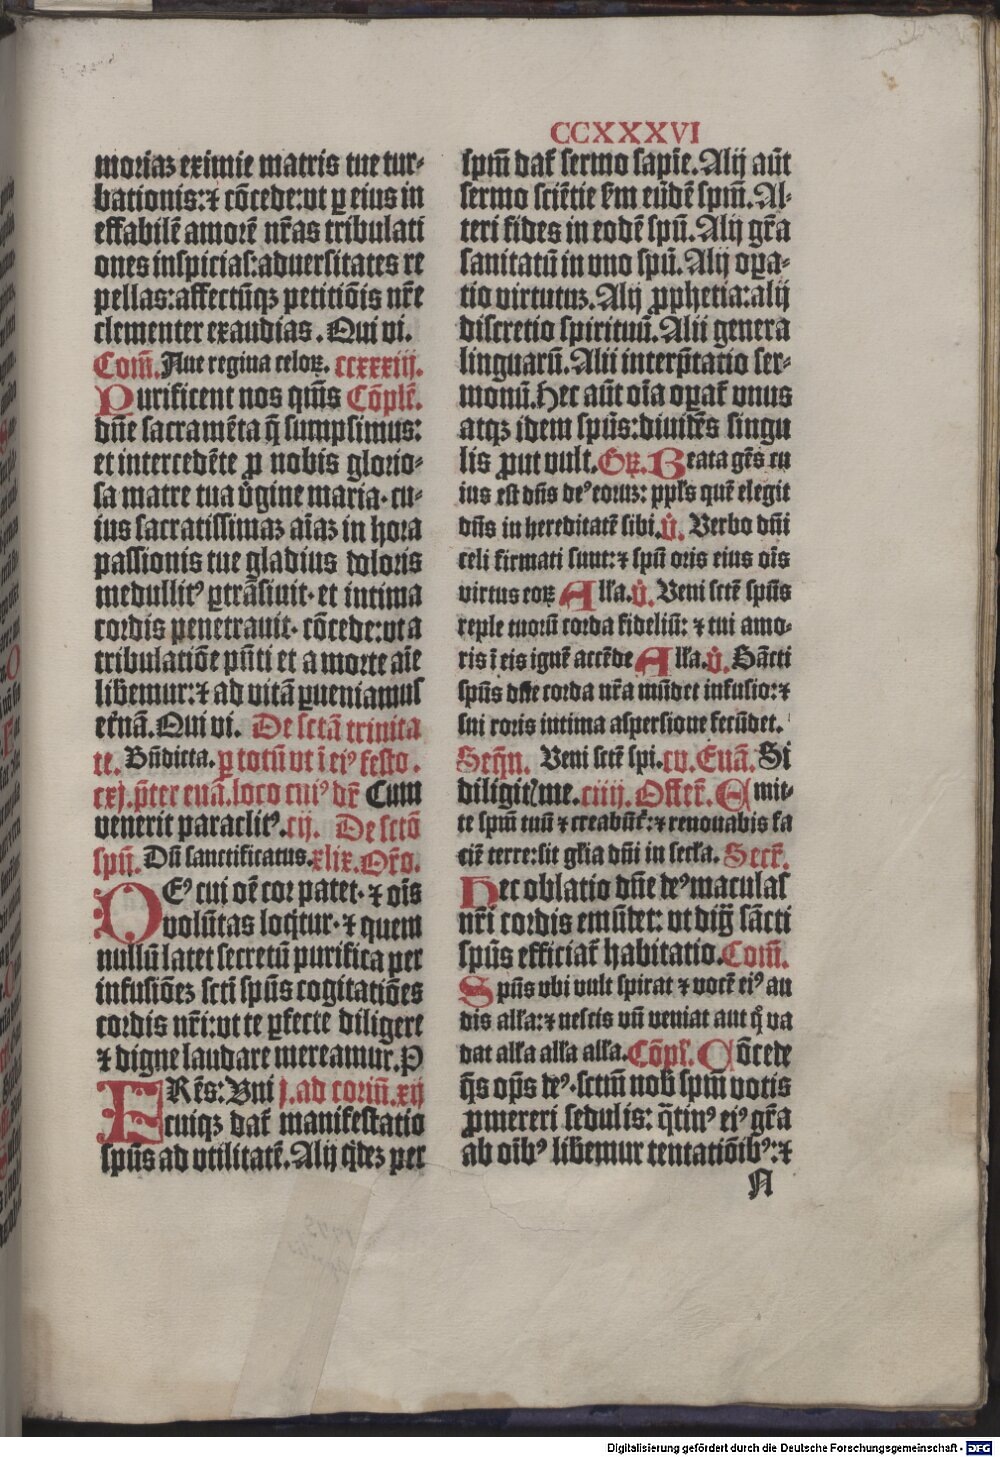 CCXXXVI
moriaꝫ eximie matris tue tur-
bationis: ⁊ cōcede: vt ꝑ eius in
effabilē amorē nr̄as tribulati
ones inspicias: aduersitates re
pellas: affectūqꝫ petitiōis nr̄e
clementer exaudias. Qui vi.
Com̄. Aue regina celoꝝ. ccxxxiij.
Purificent nos qm̄s Cōplē.
dn̄e sacramēta q̄ sumpsimus:
et intercedēte ꝓ nobis glorio-
sa matre tua v̄gine maria. cu-
ius sacratissimaꝫ aīaꝫ in hora
passionis tue gladius doloris
medullitꝰ ꝑtrāsiuit. et intima
cordis penetrauit. cōcede: vt a
tribulatiōe pn̄ti et a morte aīe
liƀemur: ⁊ ad vitā ꝑueniamus
et̄nā. Qui vi. De sctā trinita
te. Bn̄dicta. ꝑ totū vt ī eiꝰ festo.
cxj. p̄ter euā. loco cuiꝰ dr̄ Cum
venerit paraclitꝰ. cij. De sctō
spū. Dū sanctificatus. xlix. Or̄o.
DEꝰ cui oē cor patet. ⁊ oīs
volūtas loq̄tur. ⁊ quem
nullū latet secretū purifica per
infusiōeꝫ scti spūs cogitatiōes
cordis nr̄i: vt te ꝑfecte diligere
⁊ digne laudare mereamur. P
FRēs: Vni j. ad corin̄. xij
cuiqꝫ dat̄ manifestatio
spūs ad vtilitatē. Alij q̄deꝫ per
spm̄ dat̄ sermo sapīe. Alij aūt
sermo sciētie ẜm eūdē spm̄. Al-
teri fides in eodē spū. Alij gr̄a
sanitatū in vno spū. Alij oꝑa-
tio virtutuꝫ. Alij ꝓphetia: alij
discretio spirituū. Alii genera
linguarū. Alii interp̄tatio ser-
monū. Hec aūt oīa oꝑat̄ vnus
atqꝫ idem spūs: diuidēs singu
lis ꝓut vult. Gꝝ. Beata gēs cu
ius est dn̄s deꝰ eoruꝫ: ppl̄s quē elegit
dn̄s in hereditatē sibi. v̄. Verbo dn̄i
celi firmati sunt: ⁊ spū oris eius oīs
virtus eoꝝ Alľa. v̄. Veni sctē spūs
reple tuorū corda fideliū: ⁊ tui amo-
ris ī eis ignē accēde Alľa. v̄. Sācti
spūs dn̄e corda nr̄a mūdet infusio: ⁊
sui roris intima aspersione fecūdet.
Seq̄n. Veni sctē spi. cv. Euā. Si
diligitꝭ me. ciiij. Offer̄. Emit-
te spm̄ tuū ⁊ creabūt̄: ⁊ renouabis fa
ciē terre: sit gľia dn̄i in secľa. Secr̄.
Hec oblatio dn̄e deꝰ maculas
nr̄i cordis emūdet: vt diḡ sācti
spūs efficiat̄ habitatio. Com̄.
Spūs vbi vult spirat ⁊ vocē eiꝰ au
dis alľa: ⁊ nescis vn̄ veniat aut q̊ va
dat alľa alľa alľa. Cōpľ. Cōcede
q̄s op̄s deꝰ. sctm̄ nob̄ spm̄ votis
ꝓmereri sedulis: q̄tinꝰ eiꝰ gr̄a
ab oībꝰ liƀemur tentatiōibꝰ: ⁊
N
Digitalisierung gefördert durch die Deutsche Forschungsgemeinschaft - DFG